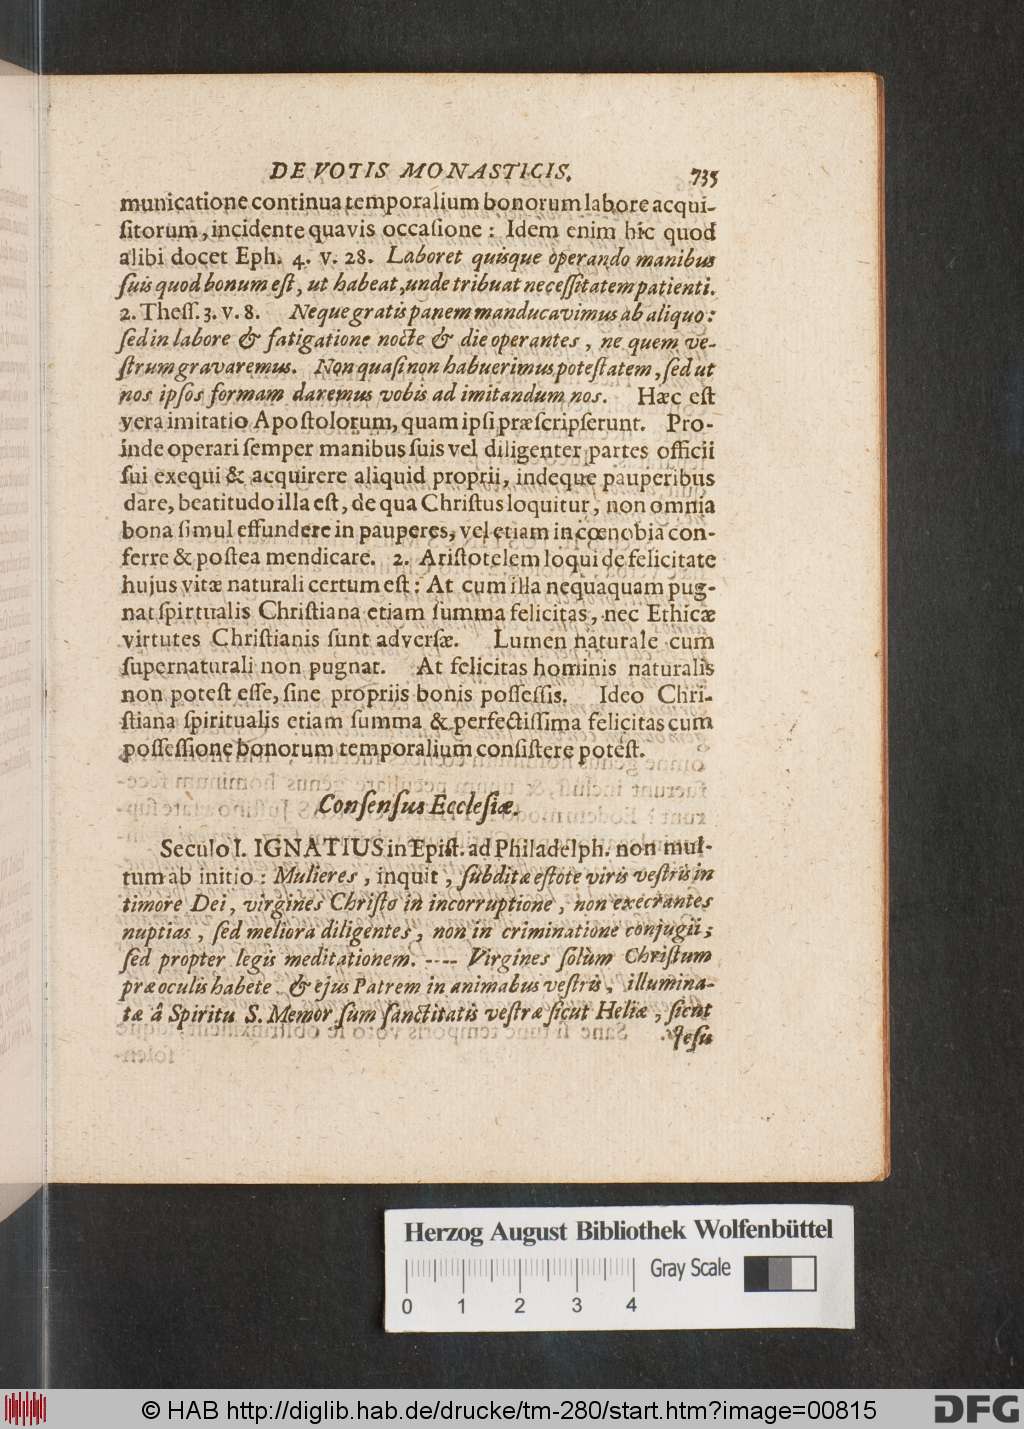 DE VOTIS MONASTICIS. 735
municatione continua temporalium bonorum labore acqui-
ſitorum, incidente quavis occaſione: Idem enim hîc quod
alibi docet Eph. 4. v. 28. Laboret quisque operando manibus
ſuis quod bonum eſt, ut habeat, unde tribuat neceſſitatem patienti.
2. Theſſ. 3. v. 8. Neque gratis panem manducavimus ab aliquo:
ſed in labore & fatigatione nocte & die operantes, ne quem ve-
ſtrum gravaremus. Non quaſi non habuerimus poteſtatem, ſed ut
nos ipſos formam daremus vobis ad imitandum nos. Hæc eſt
vera imitatio Apoſtolorum, quam ipſi præſcripſerunt. Pro-
inde operari ſemper manibus ſuis vel diligenter partes officii
ſui exequi & acquirere aliquid proprii, indeque pauperibus
dare, beatitudo illa eſt, de qua Chriſtus loquitur, non omnia
bona ſimul effundere in pauperes, vel etiam in cœnobia con-
ferre & poſtea mendicare. 2. Ariſtotelem loqui de felicitate
hujus vitæ naturali certum eſt: At cum illa nequaquam pug-
nat ſpirtualis Chriſtiana etiam ſumma felicitas, nec Ethicæ
virtutes Chriſtianis ſunt adverſæ. Lumen naturale cum
ſupernaturali non pugnat. At felicitas hominis naturalis
non poteſt eſſe, ſine propriis bonis poſſeſſis. Ideo Chri-
ſtiana ſpiritualis etiam ſumma & perfectiſſima felicitas cum
poſſeſſione bonorum temporalium conſiſtere poteſt.
Conſenſus Eccleſiæ.
Seculo I. IGNATIUS in Epiſt. ad Philadelph. non mul-
tum ab initio: Mulieres, inquit, ſubditæ eſtote viris veſtris in
timore Dei, virgines Chriſto in incorruptione, non execrantes
nuptias, ſed meliora diligentes, non in criminatione conjugii;
ſed propter legis meditationem. ---- Virgines ſolùm Chriſtum
præ oculis habete & ejus Patrem in animabus veſtris, illumina-
tæ â Spiritu S. Memor ſum ſanctitatis veſtræ ſicut Heliæ, ſicut
Jeſu
Herzog August Bibliothek Wolfenbüttel
Gray Scale
0 1 2 3 4
© HAB http://diglib.hab.de/drucke/tm-280/start.htm?image=00815
DFG